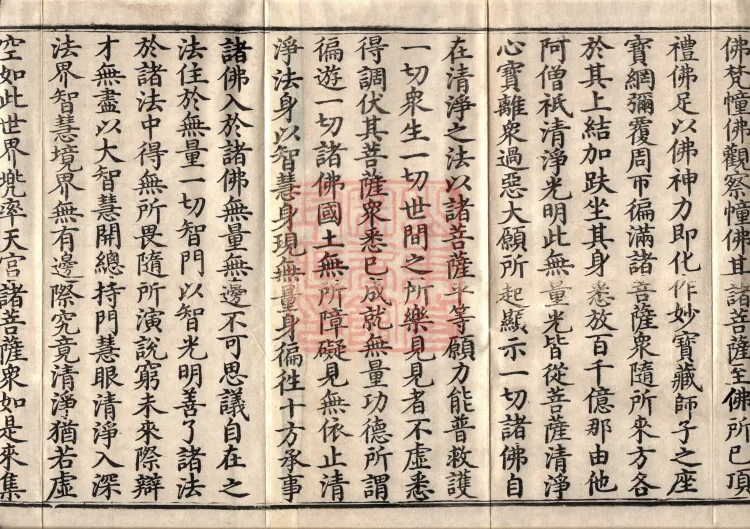 佛梵幢佛觀察幢佛其諸菩薩至佛所已頂
禮佛足以佛神力即化作妙寶藏師子之座
寶網彌覆周帀徧滿諸菩薩衆隨所來方各
於其上結加趺坐其身悉放百千億那由他
阿僧祇清淨光明此無量光皆從菩薩清淨
心寶離衆過惡大願所起顯示一切諸佛自
在清淨之法以諸菩薩平等願力能普救護
一切衆生一切世間之所樂見見者不虛悉
得調伏其菩薩衆悉已成就無量功德所謂
徧遊一切諸佛國土無所障礙見無依止清
淨法身以智慧身現無量身徧往十方承事
諸佛入於諸佛無量無邊不可思議自在之
法住於無量一切智門以智光明善了諸法
於諸法中得無所畏隨所演說窮未來際辯
才無盡以大智慧開總持門慧眼清淨入深
法界智慧境界無有邊際究竟清淨猶若虛
空如此世界兜率天宮諸菩薩衆如是來集